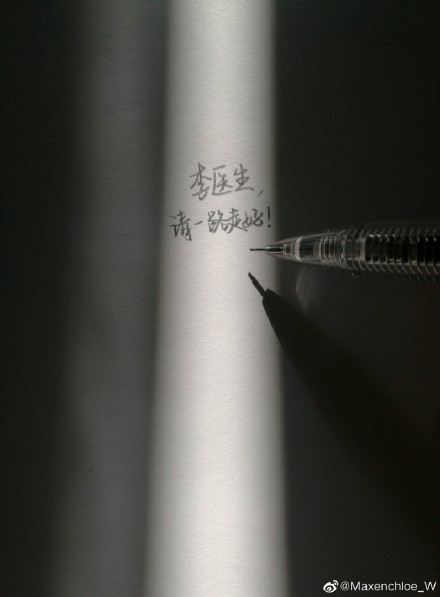 李医生，
请一路走好！
@Maxenchloe_W